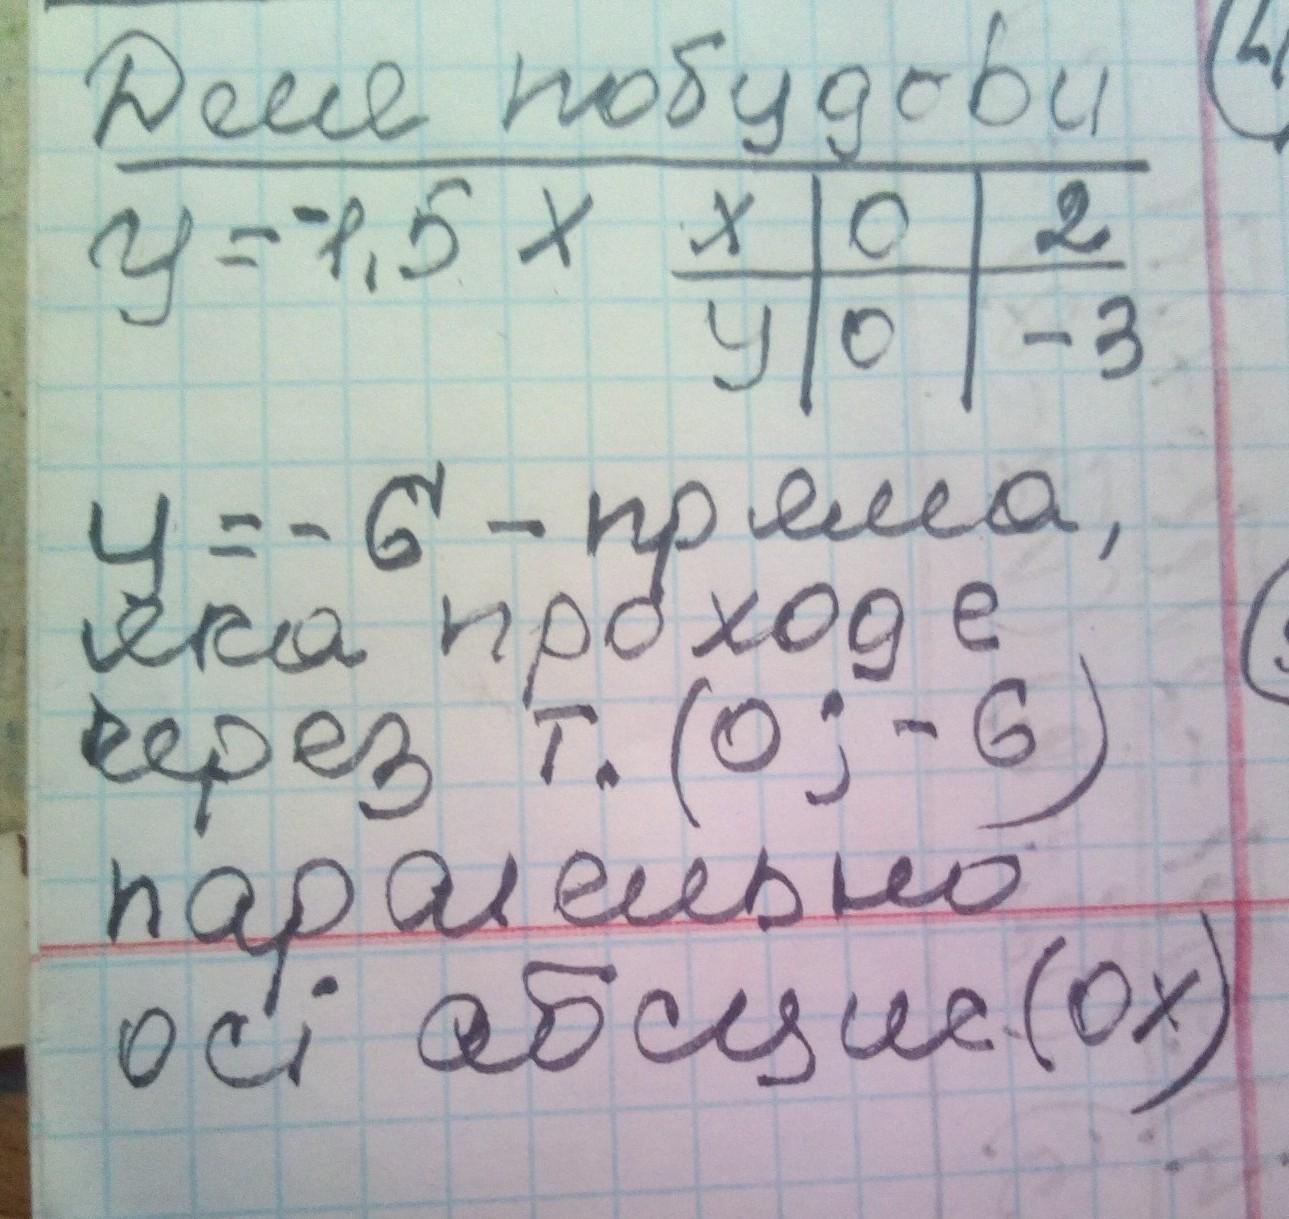 Деле побудови
y = -1,5 x x | 0 | 2
y | 0 | -3
y = - 6 - пряма,
яка проходе
через т. (0 ; - 6)
паралельно
осі абсцис (0x)